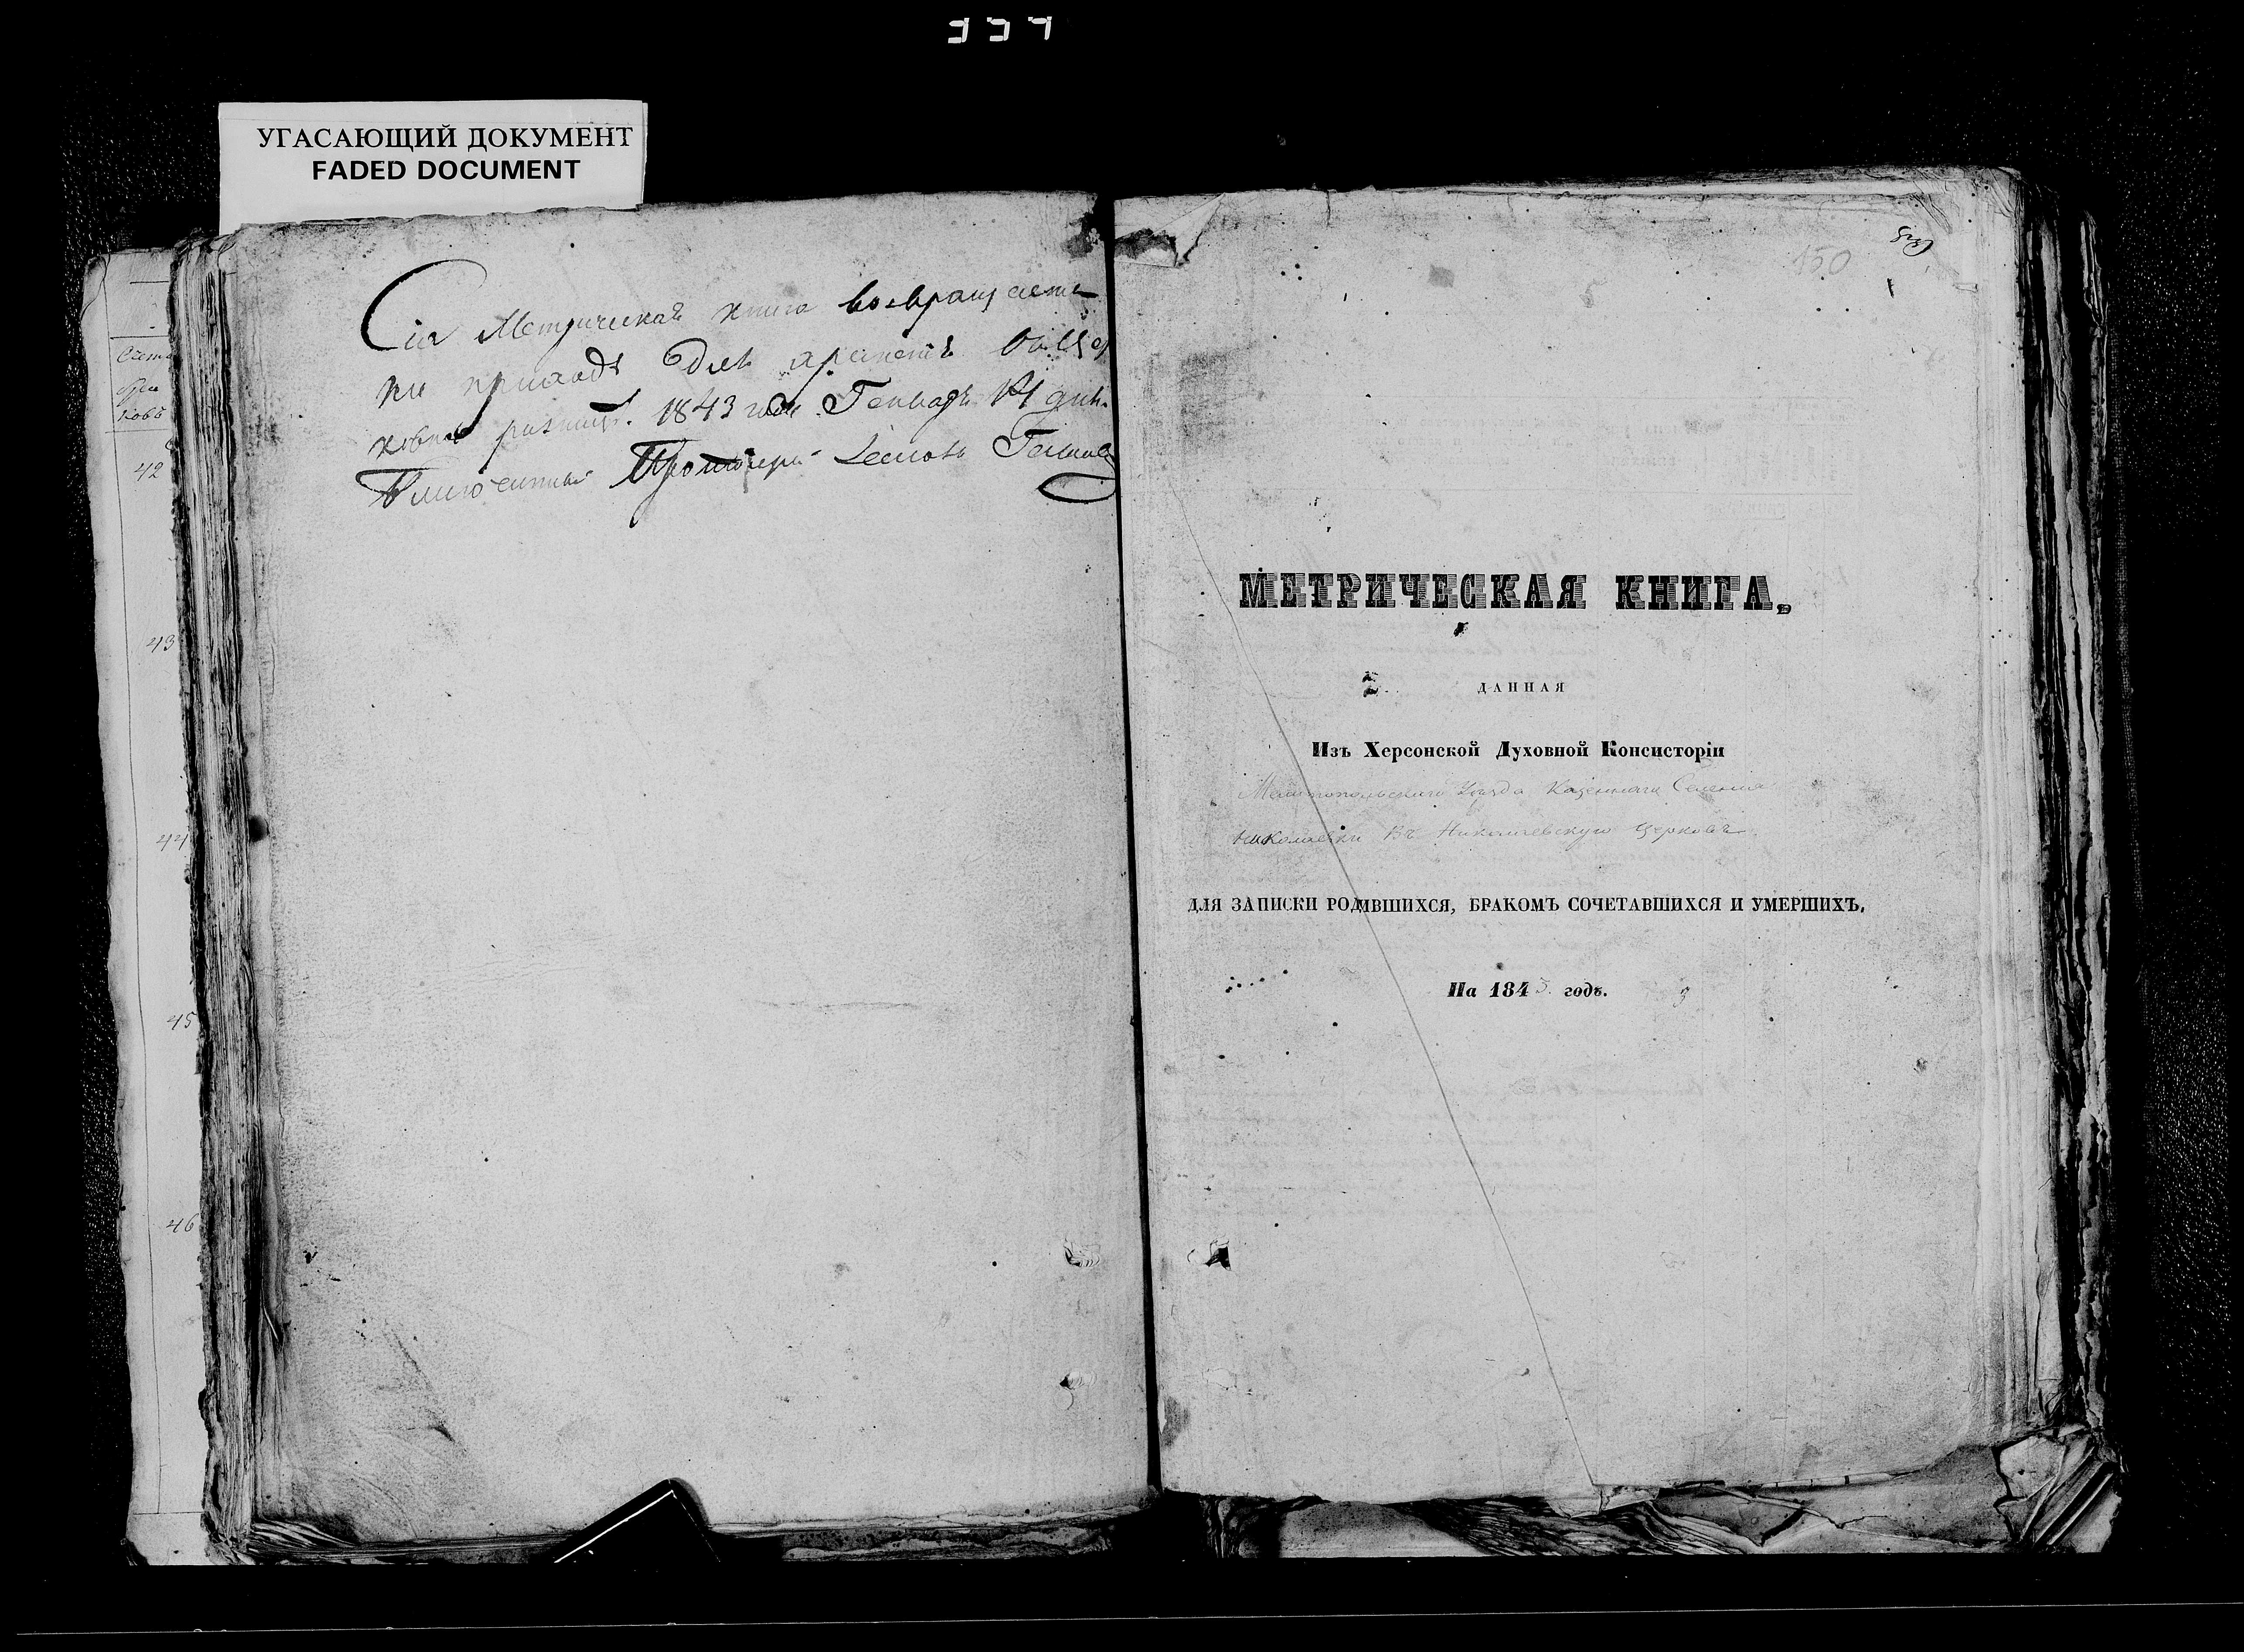 УГАСАЮЩИЙ ДОКУМЕНТ
FADED DOCUMENT
Счетъ
42
43
44
45
46
Сія Метрическая книга возвращается
въ приходъ для
1843 года Генваря 14 дня.
Благочинный Протоіерей
150
МЕТРИЧЕСКАЯ КНИГА,
ДАННАЯ
Изъ Херсонской Духовной Консисторіи
Мелитопольскаго Уѣзда Казеннаго Селенія
Николаевки Въ Николаевскую церковь
ДЛЯ ЗАПИСКИ РОДИВШИХСЯ, БРАКОМЪ СОЧЕТАВШИХСЯ И УМЕРШИХЪ.
На 1843 годъ.
3